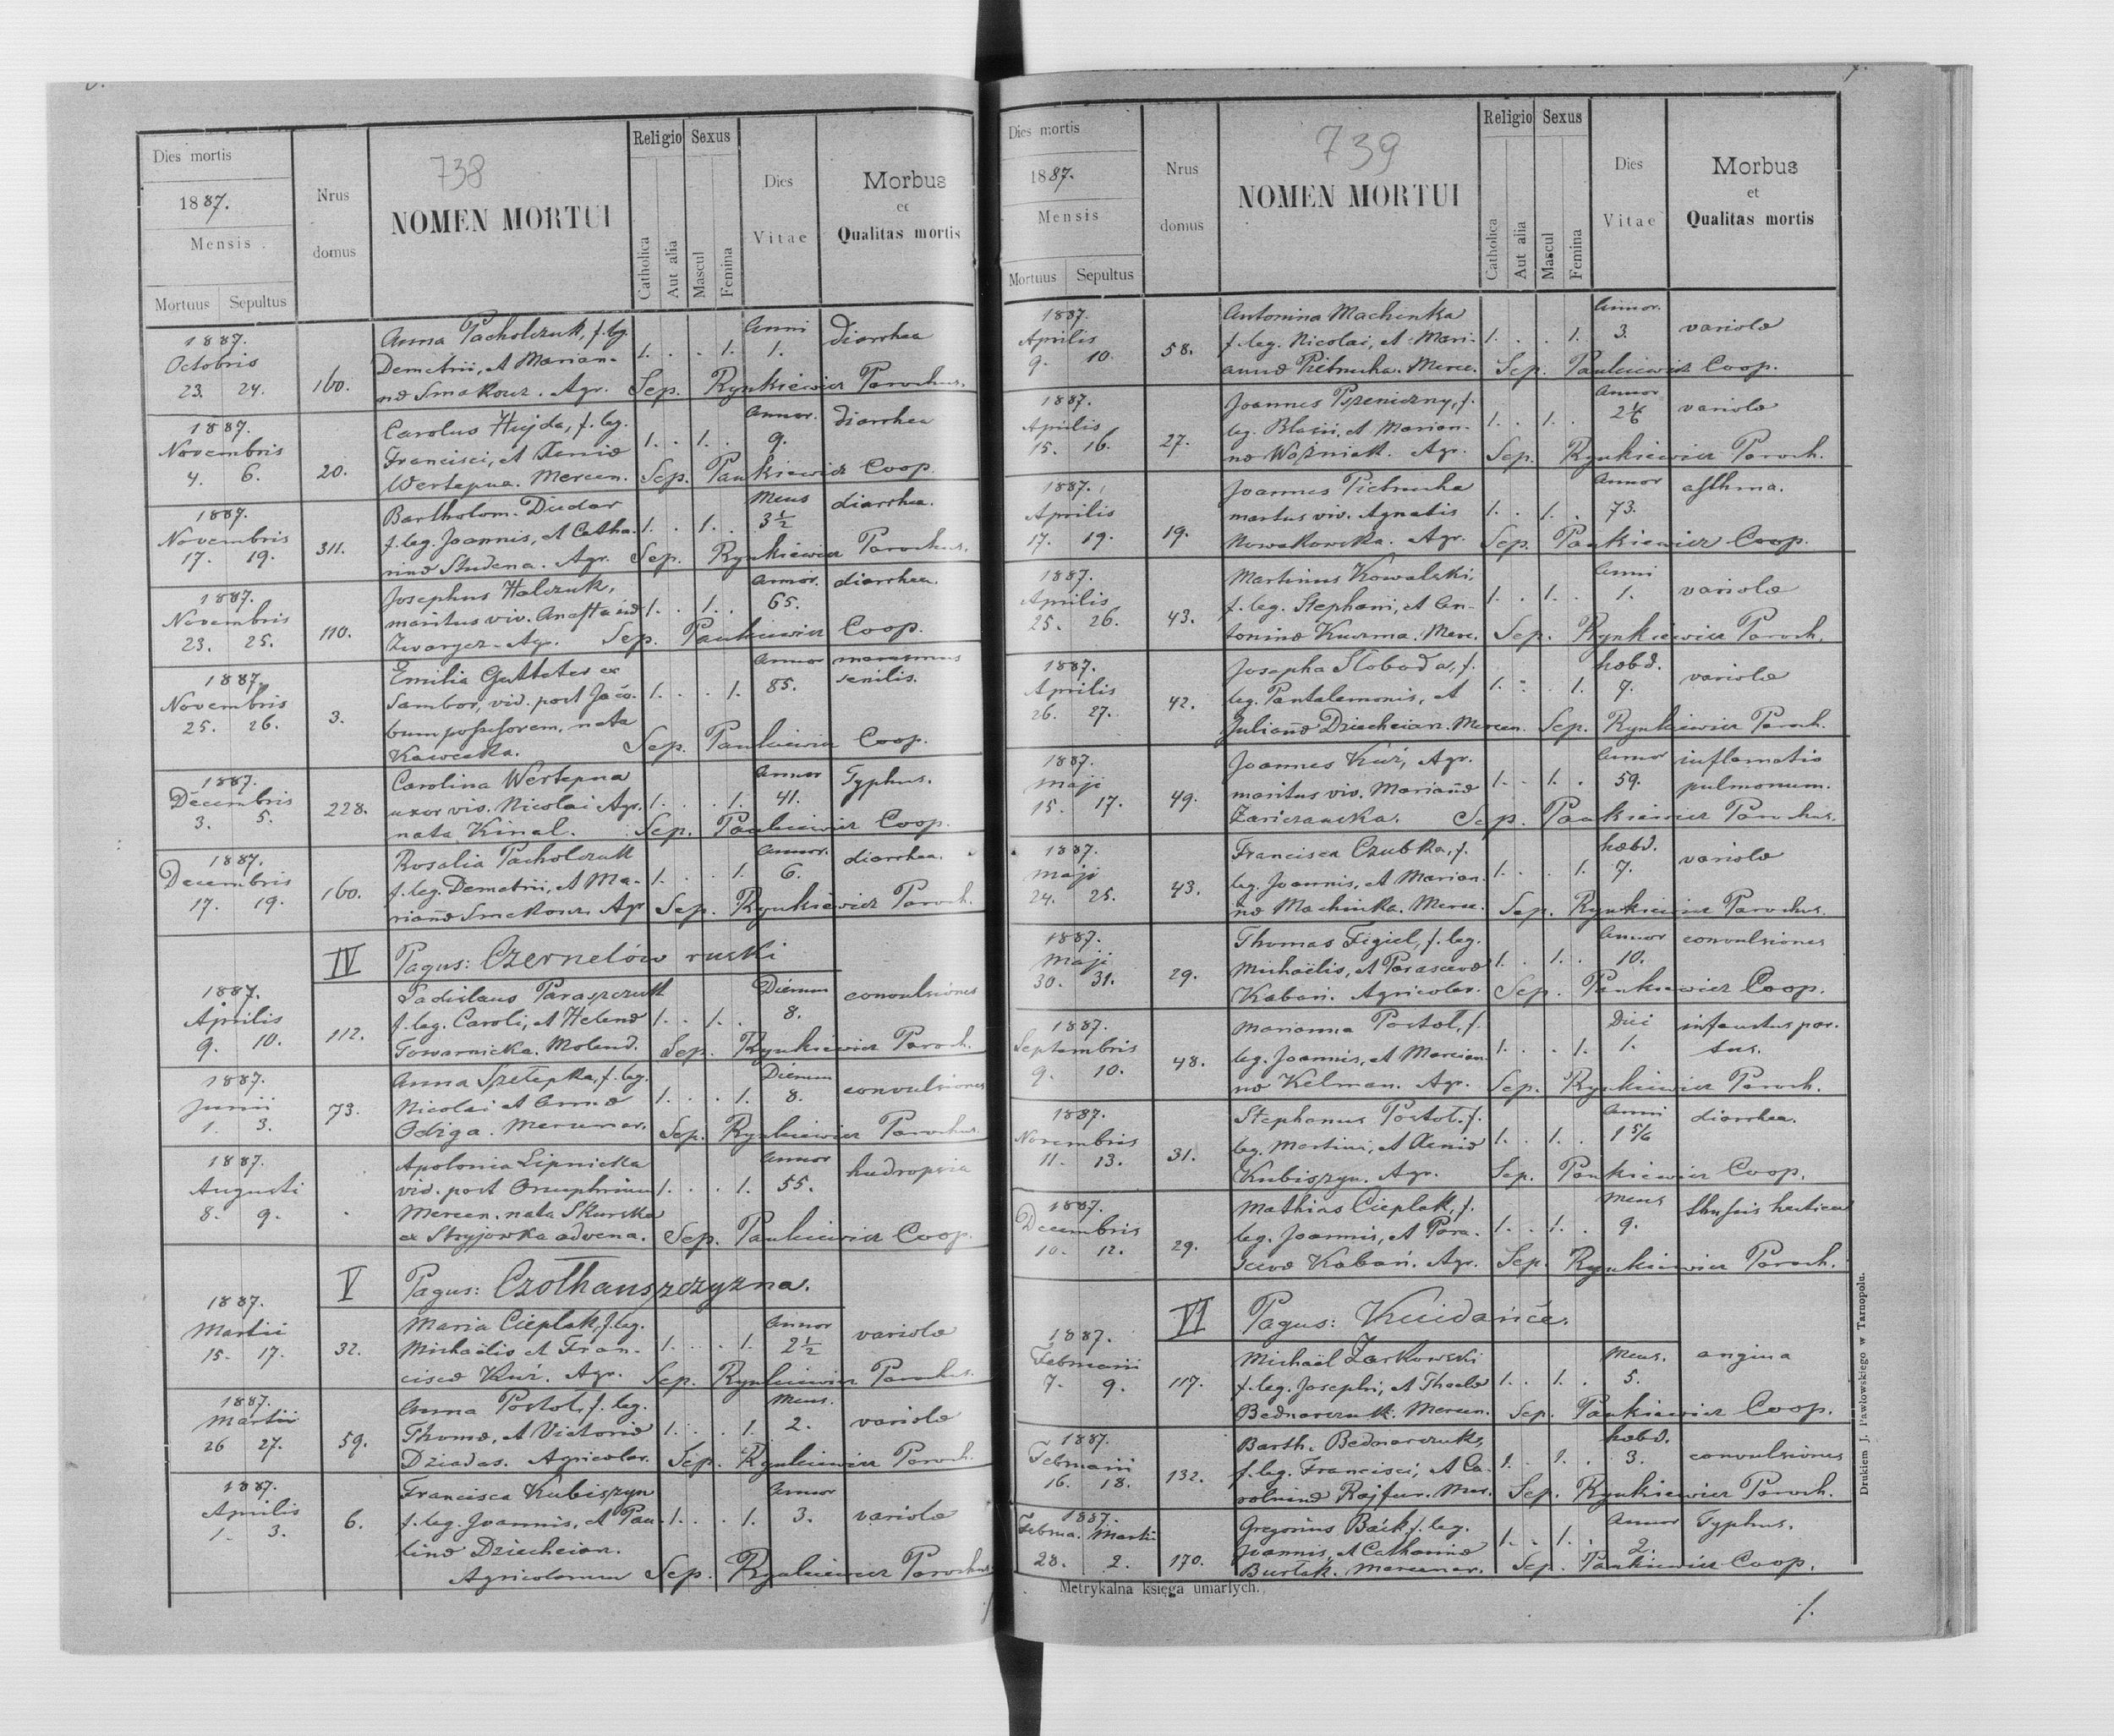 738
Dies mortis
1887.
Mensis
Mortuus Sepultus
Nrus domus
NOMEN MORTUI
Religio
Catholica
Aut alia
Sexus
Mascul
Femina
Dies Vitae
Morbus
et
Qualitas mortis
1887.
Octobris
23. 24.
160.
Anna Pacholczuk, f. leg.
Demetrii, et Marian-
næ Smakouz. Agr.
1. 1.
Anni
1.
diarrhea
Sep. Rynkiewicz Parochus.
1887.
Novembris
4. 6.
20.
Carolus Hujda, f. leg.
Francisci, et Xeniæ
Wertepna. Mercen.
1. 1.
Annor.
9.
diarrhea
Sep. Pankiewicz Coop.
1887.
Novembris
17. 19.
311.
Bartholom. Dudar
f. leg. Joannis, et Catha-
rinæ Studena. Agr.
1. 1.
Mens
3½
diarrhea.
Sep. Rynkiewicz Parochus.
1887.
Novembris
23. 25.
110.
Josephus Halczuk,
maritus viv. Anastasiæ
Zwarycz. Agr.
1. 1.
Annor.
65.
diarrhea.
Sep. Pankiewicz Coop.
1887.
Novembris
25. 26.
3.
Emilia Gutteter ex
Sambor, vid. post Jaco-
bum possessorem, nata
Kawecka.
1. 1.
Annor
85.
marasmus
senilis.
Sep. Pankiewicz Coop.
1887.
Decembris
3. 5.
228.
Carolina Wertepna
uxor viv. Nicolai Agr.
nata Kinal.
1. 1.
Annor
41.
Typhus.
Sep. Pankiewicz Coop.
1887.
Decembris
17. 19.
160.
Rosalia Pacholczuk
f. leg. Demetrii, et Ma-
riannæ Smakouz. Agr
1. 1.
Annor.
6.
diarrhea.
Sep. Rynkiewicz Paroch.
IV Pagus: Czernelów ruski
1887.
Aprilis
9. 10.
112.
Ladislaus Paraszczuk
f. leg. Caroli, et Helenæ
Towarnicka. Molend.
1. 1.
Dierum
8.
convulsiones
Sep. Rynkiewicz Paroch.
1887.
Junii
1. 3.
73.
Anna Szełepka, f. leg.
Nicolai et Annæ
Odiga. Mercenar.
1. 1.
Dierum
8.
convulsiones
Sep. Rynkiewicz Parochus.
1887.
Augusti
8. 9.
Apolonia Lipnicka
vid. post Onuphrium
Mercen. nata Skurska
ex Stryjowka advena.
1. 1.
Annor
55.
hudropsia
Sep. Pankiewicz Coop.
V Pagus: Czołhanszczyzna.
1887.
Martii
15. 17.
32.
Maria Cieplak, f. leg.
Michaëlis et Fran-
ciscæ Kuź. Agr.
1. 1.
Annor
2½
variolæ
Sep. Rynkiewicz Parochus.
1887.
Martii
26 27.
59.
Anna Postoł, f. leg.
Thomæ, et Victoriæ
Dziadas. Agricolar.
1. 1.
Mens.
2.
variolæ
Sep. Rynkiewicz Paroch.
1887.
Aprilis
1. 3.
6.
Francisca Kubiszyn
f. leg. Joannis, et Pau-
linæ Dziecheiar.
Agricolarum
1. 1.
Annor
3.
variolæ
Sep. Rynkiewicz Parochus
739
7.
Dies mortis
1887.
Mensis
Mortuus Sepultus
Nrus domus
NOMEN MORTUI
Religio
Catholica
Aut alia
Sexus
Mascul
Femina
Dies Vitae
Morbus
et
Qualitas mortis
1887.
Aprilis
9. 10.
58.
Antonina Machinka
f. leg. Nicolai, et Mari-
annæ Pietrucha. Merce.
1. 1.
Annor.
3.
variolæ
Sep. Pankiewicz Coop.
1887.
Aprilis
15. 16.
27.
Joannes Pszeniczny, f.
leg. Blasii, et Marian-
næ Woźniak. Agr.
1. 1.
Annor
variolæ
Sep. Rynkiewicz Paroch.
1887.
Aprilis
17. 19.
19.
Joannes Pietrucha
martus viv. Agnetis
Nowakowska. Agr.
1. 1.
Annor
73.
asthma.
Sep. Pankiewicz Coop.
1887.
Aprilis
25. 26.
43.
Martinus Kowalski,
f. leg. Stephani, et An-
toninæ Kuzma. Merc.
1. 1.
Anni
1.
variolæ
Sep. Rynkiewicz Paroch.
1887.
Aprilis
26. 27.
42.
Josepha Słoboda, f.
leg. Pantalemonis, et
Juliannæ Dziecheiar. Mercen.
1. 1.
hebd.
7.
variolæ
Sep. Rynkiewicz Paroch.
1887.
Maji
15. 17.
49.
Joannes Kuź, Agr.
maritus viv. Mariannæ
Zariczańska.
1. 1.
Annor
59.
inflamatio
pulmonum.
Sep. Pankiewicz Parochus.
1887.
Maji
24. 25.
43.
Francisca Czubka, f.
leg. Joannis, et Marian-
næ Machinka. Merce.
1. 1.
hebd.
7.
variolæ
Sep. Rynkiewicz Parochus.
1887.
Maji
30. 31.
29.
Thomas Figiel, f. leg.
Michaëlis, et Parascevæ
Kaban. Agricolar.
1. 1.
Annor
10.
convulsiones
Sep. Pankiewicz Coop.
1887.
Septembris
9. 10.
48.
Marianna Postoł, f.
leg. Joannis, et Marian-
næ Kelman. Agr.
1. 1.
Diei
1.
infaustus par-
tus.
Sep. Rynkiewicz Paroch.
1887.
Novembris
11. 13.
31.
Stephanus Postoł. f.
leg. Martini, et Xeniæ
Kubiszyn. Agr.
1. 1.
Anni
1 5/6
diarrhea.
Sep. Pankiewicz Coop.
1887.
Decembris
10. 12.
29.
Mathias Cieplak, f.
leg. Joannis, et Para-
scevæ Kabań. Agr.
1. 1.
Mens
9.
Sep. Rynkiewicz Paroch.
VI Pagus: Kujdańce.
1887.
Februarii
7. 9.
117.
Michaël Żarkowski
f. leg. Josephi, et Theclæ
Bednarczuk. Mercen.
1. 1.
Mens.
5.
angina
Sep. Pankiewicz Coop.
1887.
Februarii
16. 18.
132.
Barth. Bednarczuk,
f. leg. Francisci, et Ca-
rolninæ Rajfur. Mer.
1. 1.
hebd.
3.
convulsiones
Sep. Rynkiewicz Paroch.
1887.
Februa. Martii
28. 2.
170.
Gregorius Baćk, f. leg.
Joannis, et Catharinæ
Burłak. Mercenar.
1. 1.
Annor
2.
Typhus.
Sep. Pankiewicz Coop.
Metrykalna księga umarłych.
Drukiem J. Pawłowskiego w Tarnopolu.